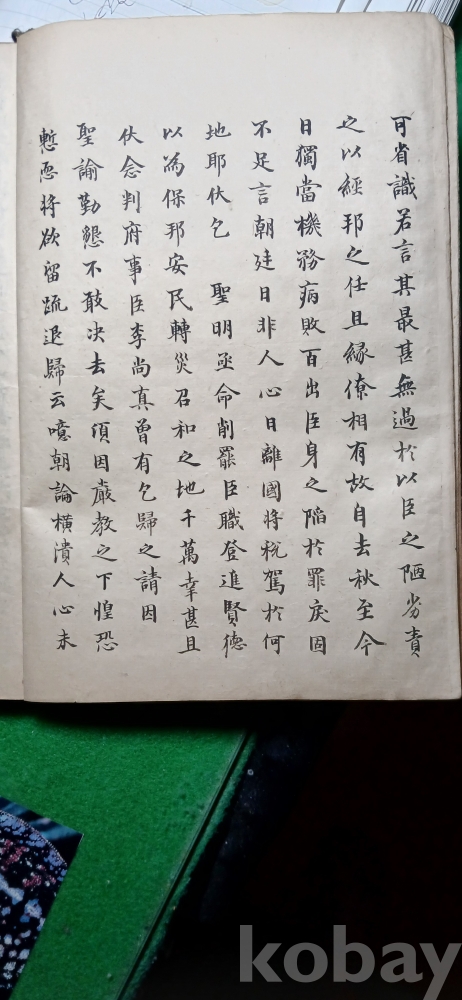 可省識若言其最甚無過於以臣之陋劣責
之以經邦之任且緣僚相有故自去秋至今
日獨當機務病敗百出臣身之陷於罪戾固
不足言朝廷日非人心日離國將稅駕於何
地耶伏乞 聖明亟命削罷臣職登進賢德
以為保邦安民轉災召和之地千萬幸甚且
伏念判府事臣李尚真曾有乞歸之請因
聖諭勤懇不敢決去矣頃因嚴教之下惶恐
慙恧將欲留疏退歸云噫朝論橫潰人心未
kobay